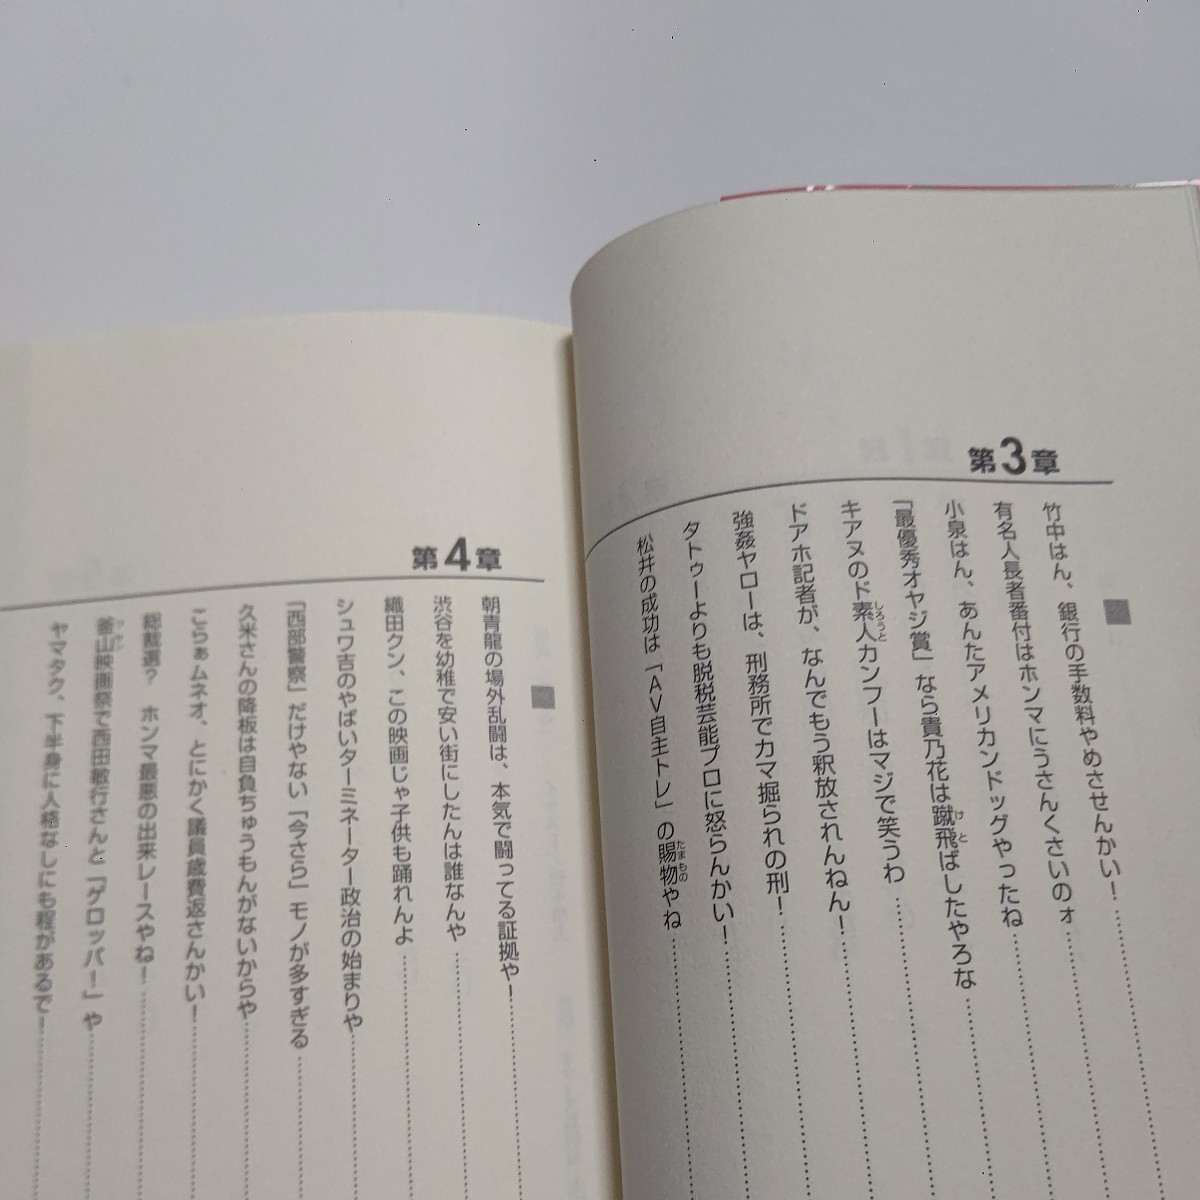 第3章
竹中はん、銀行の手数料やめさせんかい!
有名人長者番付はホンマにうさんくさいのォ
小泉はん、あんたアメリカンドッグやったね
「最優秀オヤジ賞」なら貴乃花は蹴飛ばしたやろな
キアヌのド素人カンフーはマジで笑うわ
ドアホ記者が、なんでもう釈放されんねん!
強姦ヤローは、刑務所でカマ掘られの刑!
タトゥーよりも脱税芸能プロに怒らんかい!
松井の成功は「AV自主トレ」の賜物やね
第4章
朝青龍の場外乱闘は、本気で闘ってる証拠や!
渋谷を幼稚で安い街にしたんは誰なんや
織田クン、この映画じゃ子供も踊れんよ
シュワ吉のやばいターミネーター政治の始まりや
「西部警察」だけやない「今さら」モノが多すぎる
久米さんの降板は自負ちゅうもんがないからや
こらぁムネオ、とにかく議員歳費返さんかい!
総裁選? ホンマ最悪の出来レースやね!
釜山映画祭で西田敏行さんと「ゲロッパ!」や
ヤマタク、下半身に人格なしにも程があるで!